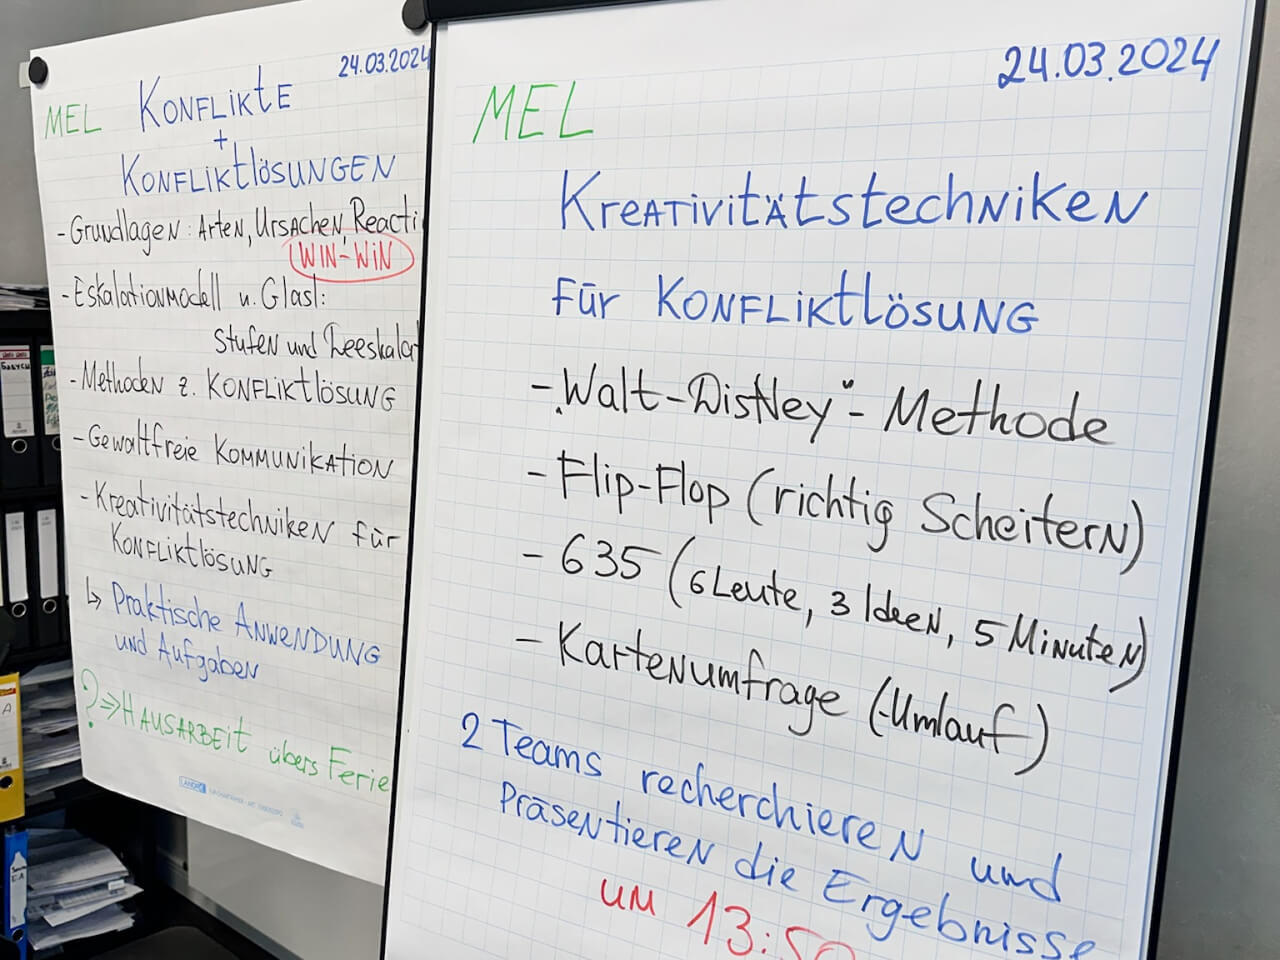 24.03.2024
MEL KONFLIKTE
+
KONFLIKTLÖSUNGEN
- Grundlagen: Arten, Ursachen, Reacti
WIN-WIN
- Eskalationmodell n. Glasl:
Stufen und Deeskalat
- Methoden z. KONFLIKTLÖSUNG
- Gewaltfreie KOMMUNIKATION
- Kreativitätstechniken für
KONFLIKTLÖSUNG
↳ Praktische Anwendung
und Aufgaben
? ⇒ HAUSARBEIT übers Ferie
24.03.2024
MEL
Kreativitätstechniken
für KONFLIKTLÖSUNG
- „Walt-Distney"- Methode
- Flip-Flop (richtig Scheitern)
- 635 (6 Leute, 3 Ideen, 5 Minuten)
- Kartenumfrage (-Umlauf)
2 Teams recherchieren und
Präsentieren die Ergebnisse
um 13:50